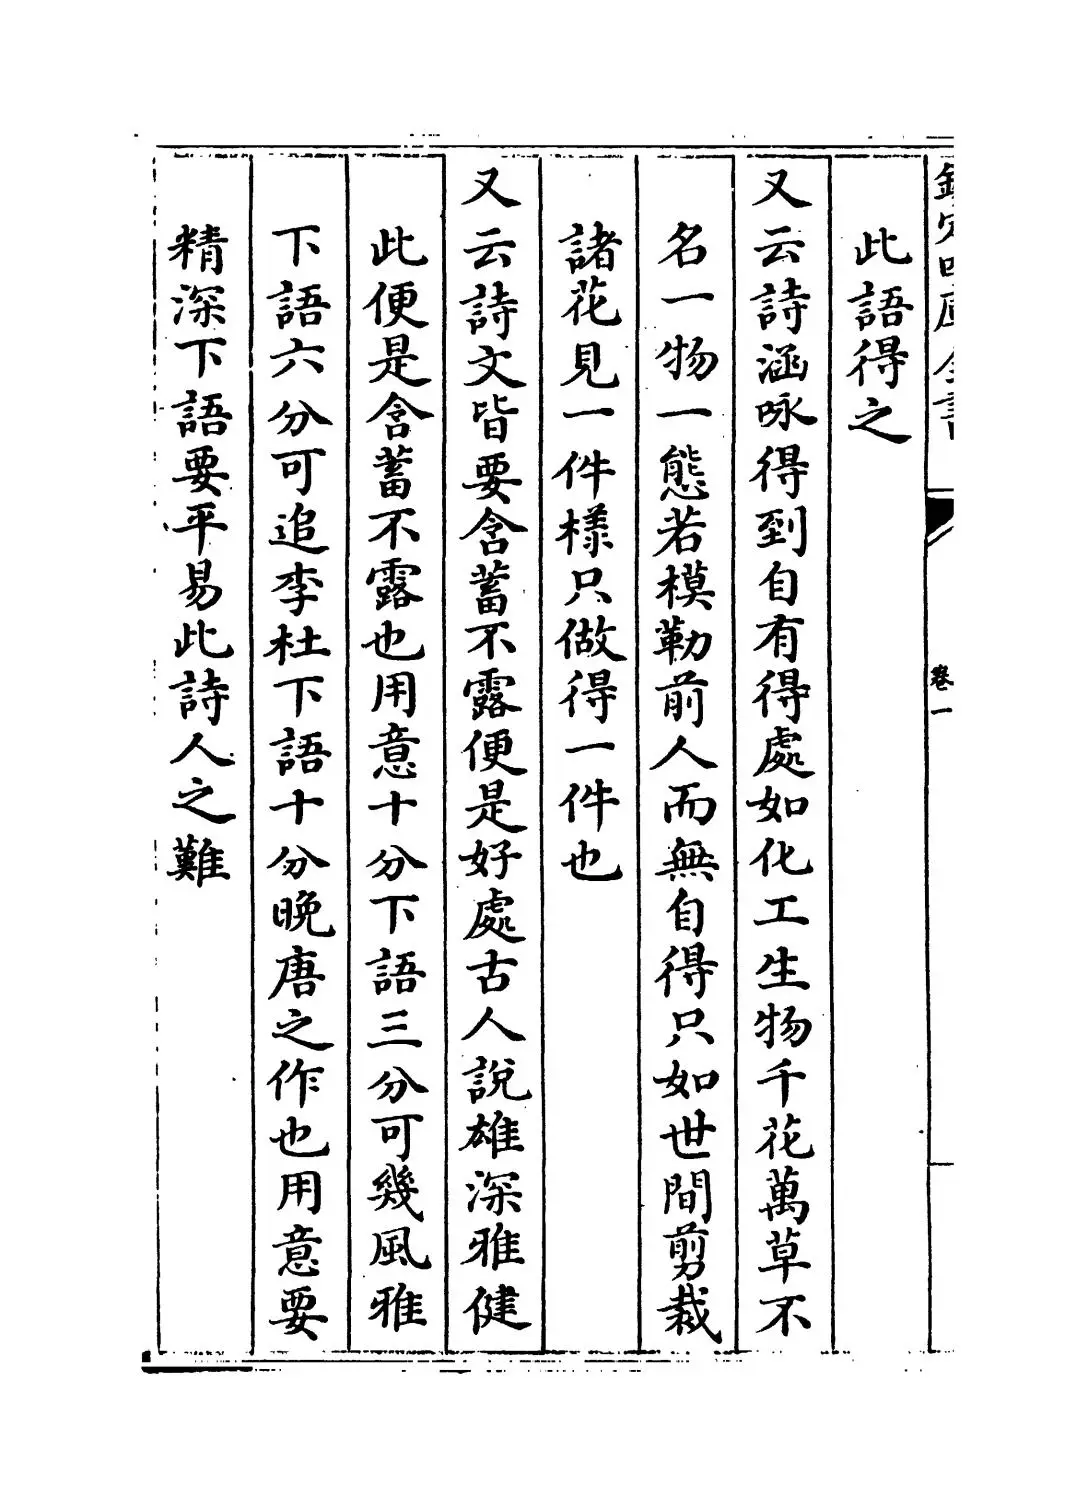 欽定四庫全書
卷一
此語得之
又云詩涵咏得到自有得處如化工生物千花萬草不
名一物一態若模勒前人而無自得只如世間剪裁
諸花見一件樣只做得一件也
又云詩文皆要含蓄不露便是好處古人說雄深雅健
此便是含蓄不露也用意十分下語三分可幾風雅
下語六分可追李杜下語十分晚唐之作也用意要
精深下語要平易此詩人之難